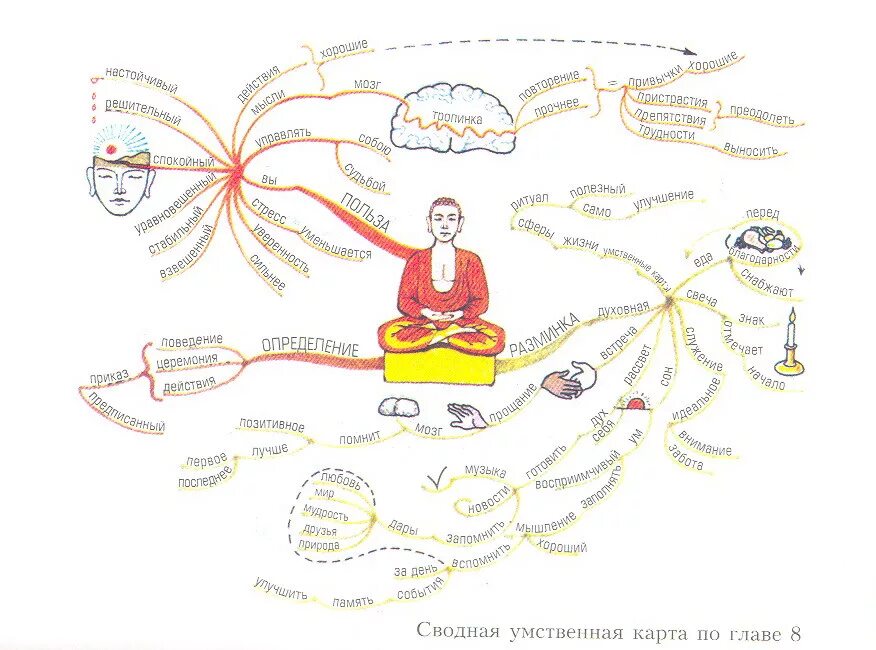 хорошие
настойчивый
действия
мысли
мозг
решительный
тропинка
повторение
прочнее
=
привычки
хорошие
пристрастия
препятствия
трудности
преодолеть
выносить
спокойный
управлять
собою
судьбой
уравновешенный
вы
ПОЛЬЗА
стабильный
стресс
уменьшается
взвешенный
уверенность
сильнее
ритуал
полезный
само
улучшение
сферы
жизни
умственные карты
перед
еда
благодарности
снабжают
духовная
свеча
знак
отмечает
начало
РАЗМИНКА
ОПРЕДЕЛЕНИЕ
поведение
церемония
действия
приказ
предписанный
встреча
прощание
рассвет
сон
служение
идеальное
внимание
забота
мозг
помнит
позитивное
лучше
первое
последнее
дух
себя
готовить
музыка
новости
ум
восприимчивый
заполнять
мышление
хороший
запомнить
дары
любовь
мир
мудрость
друзья
природа
вспомнить
за день
события
память
улучшить
Сводная умственная карта по главе 8